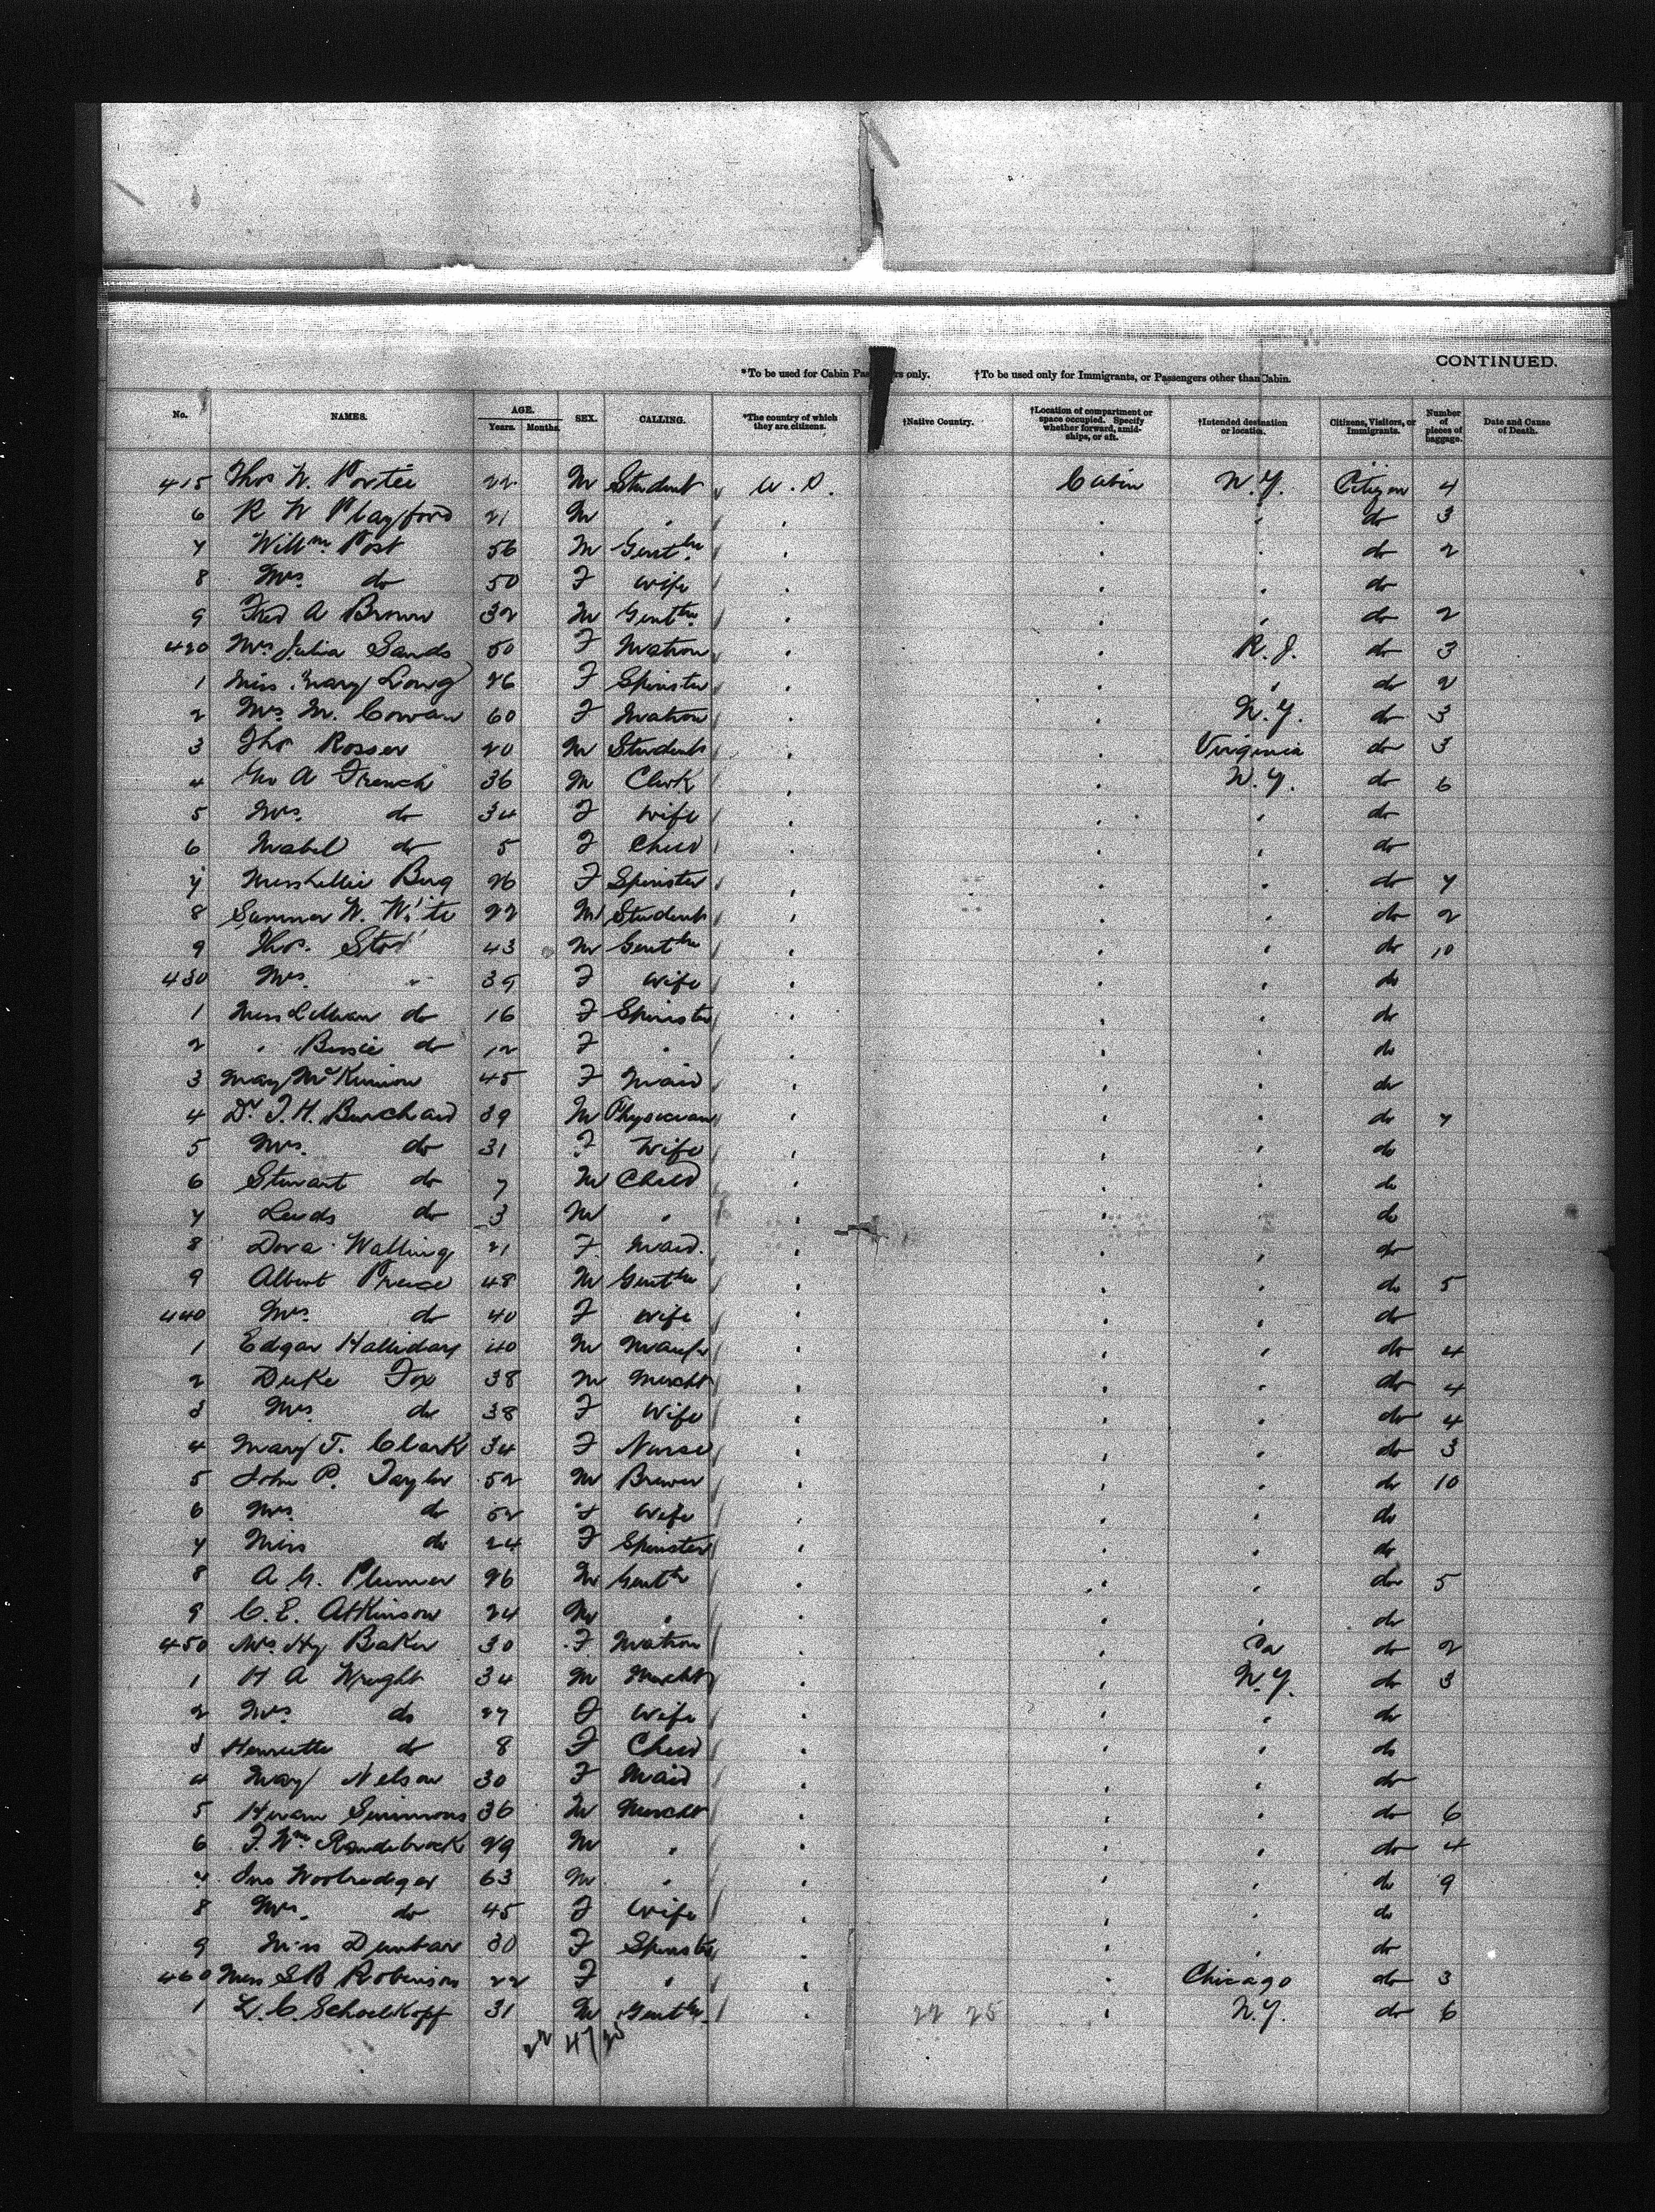 CONTINUED.
*To be used for Cabin Pas rs only. †To be used only for Immigrants, or Passengers other than Cabin.
No. NAMES. AGE. Years. Months. SEX. CALLING. *The country of which they are citizens. †Native Country. †Location of compartment or space occupied. Specify whether forward, amidships, or aft. †Intended destination or location. Citizens, Visitors, or Immigrants. Number of pieces of baggage. Date and Cause of Death.
415 Thos W. 22 M Student Cabin N.Y. Citizen 4
6 R W Playford 21 M " do 3
7 Willm Post 56 M Gentln do 2
8 Mrs. do 50 F Wife do
9 Fred A Brown 32 M Gentln do 2
420 Mrs Julia Sands 50 F Matron R.I. do 3
1 Miss Mary Long 26 F Spinster " do 2
2 Mrs. M. Cowan 60 F Matron N.Y. do 3
3 Thos Rosser 20 M Student Virginia do 3
4 Geo A French 36 M Clerk N.Y. do 6
5 Mrs. do 34 F Wife " do
6 Mabel do 5 F Child " do
7 Miss Lillie Berg 26 F Spinster " do 7
8 W. 22 M Student " do 2
9 Thos. 43 M Gentln " do 10
430 Mrs. " 39 F Wife " do
1 Miss Lillian do 16 F Spinster " do
2 " Bessie do 12 F " " do
3 May McKinnon 45 F Maid " do
4 Dr T. H. Burchard 39 M Physician " do 7
5 Mrs. do 31 F Wife " do
6 Stewart do 7 M Child " do
7 Leeds do 3 M " " do
8 Dora Walling 21 F Maid. " do
9 Albert 48 M Gentln " do 5
440 Mrs. do 40 F Wife " do
1 Edgar Halliday 40 M Manfr " do 4
2 Duke Fox 38 M Mercht " do 4
3 Mrs. do 38 F Wife " do 4
4 Mary T. Clark 34 F Nurse " do 3
5 John P. Taylor 52 M Brewer " do 10
6 Mrs. do 52 F Wife " do
7 Miss do 24 F Spinster " do
8 A. G. Plumer 26 M Gentln " do 5
9 C. E. Atkinson 24 M " " do
450 Mrs. Hy Baker 30 F Matron Pa do 2
1 H A Wright 34 M Mercht N.Y. do 3
2 Mrs. do 27 F Wife " do
3 Henrietta do 8 F Child " do
4 May Nelson 30 F Maid " do
5 Hiram Simmons 36 M Mercht " do 6
6 F. Wm 29 M " " do 4
7 Jno 63 M " " do 9
8 Mrs. do 45 F Wife " do
9 Miss Dunbar 30 F Spinster " do
460 Miss S B Robinson 22 F " Chicago do 3
1 L. C. Schoelkopf 31 M Gentln. 22 25 N.Y. do 6
22 47/25